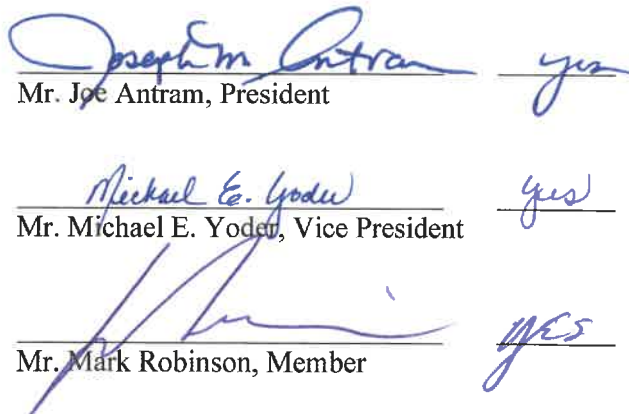 Joseph M Antram yes
Mr. Joe Antram, President
Michael E. Yoder yes
Mr. Michael E. Yoder, Vice President
YES
Mr. Mark Robinson, Member